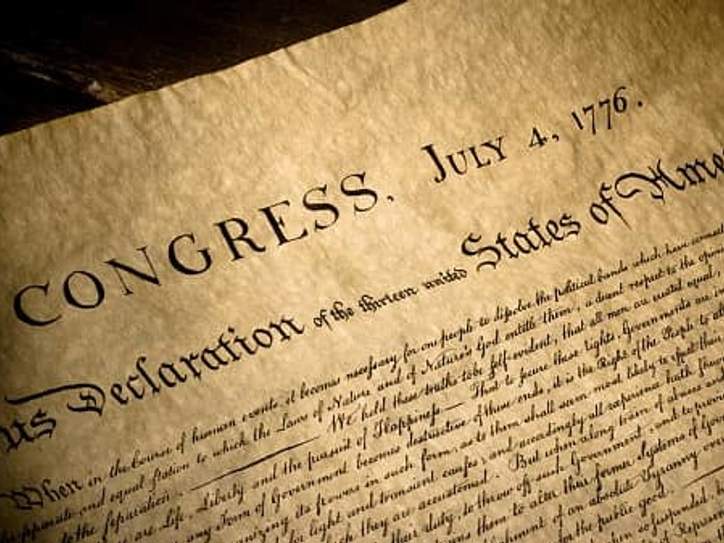 CONGRESS. JULY 4, 1776.
us Declaration of the thirteen united States of Ame
When in the Course of human events, it becomes necessary for one people to dissolve the political bands which have
separate and equal station to which the Laws of Nature and of Nature's God entitle them, a decent respect to the
to the separation. We hold these truths to be self-evident, that all men are created equal
are Life, Liberty and the pursuit of Happiness.— That to secure these rights, Governments are
any Form of Government becomes destructive of these ends, it is the Right of the People to
its powers in such form, as to them shall seem most likely to effect their
for light and transient causes; and accordingly all experience hath
they are accustomed. But when a long train of abuses and
their duty, to throw off such Government, and to
them to alter their former Systems of
of an absolute Tyranny
for the public good.